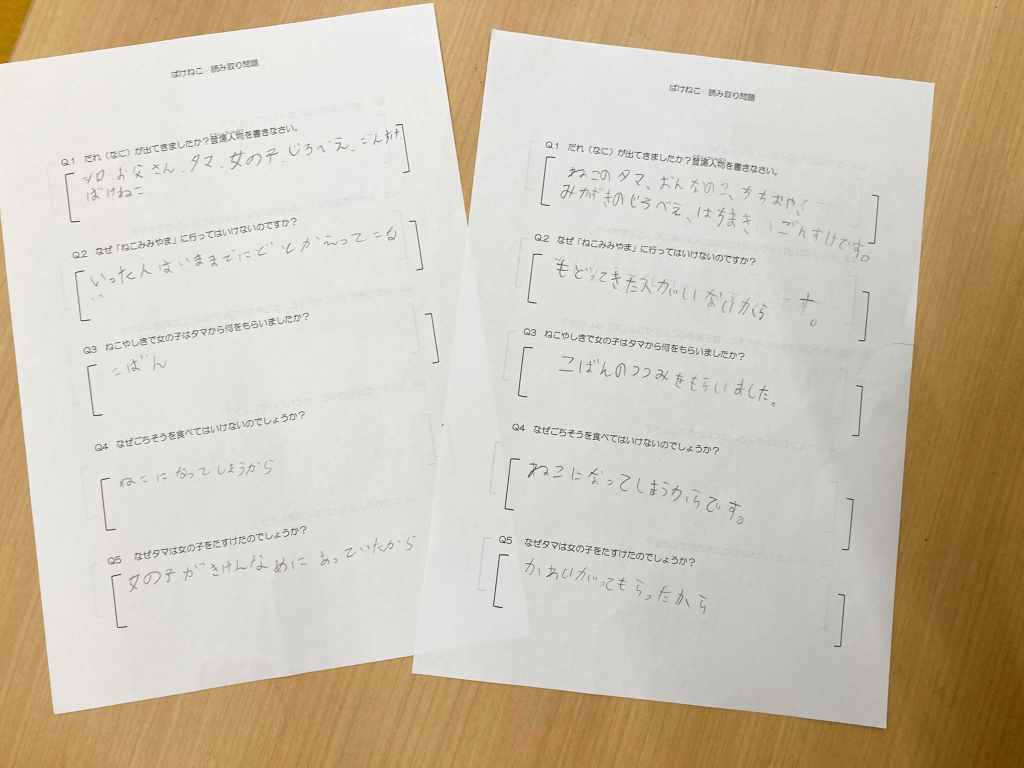 ばけねこ 読み取り問題
Q.1 だれ（なに）が出てきましたか？登場人物を書きなさい。
お父さん、タマ、女の子、じろべえ、ごんすけ
ばけねこ
Q.2 なぜ「ねこみみやま」に行ってはいけないのですか？
いった人はいままでにどとかえってこな
い
Q3 ねこやしきで女の子はタマから何をもらいましたか？
こばん
Q4 なぜごちそうを食べてはいけないのでしょうか？
ねこになってしまうから
Q5 なぜタマは女の子をたすけたのでしょうか？
女の子がきけんなめにあっていたから
ばけねこ 読み取り問題
Q.1 だれ（なに）が出てきましたか？登場人物を書きなさい。
ねこのタマ、おんなのこ、ちちおや、
みがきのじろべえ、はちまきのごんすけです。
Q.2 なぜ「ねこみみやま」に行ってはいけないのですか？
もどってきた人がいないからです。
Q3 ねこやしきで女の子はタマから何をもらいましたか？
こばんのつつみをもらいました。
Q4 なぜごちそうを食べてはいけないのでしょうか？
ねこになってしまうからです。
Q5 なぜタマは女の子をたすけたのでしょうか？
かあいがってもらったから